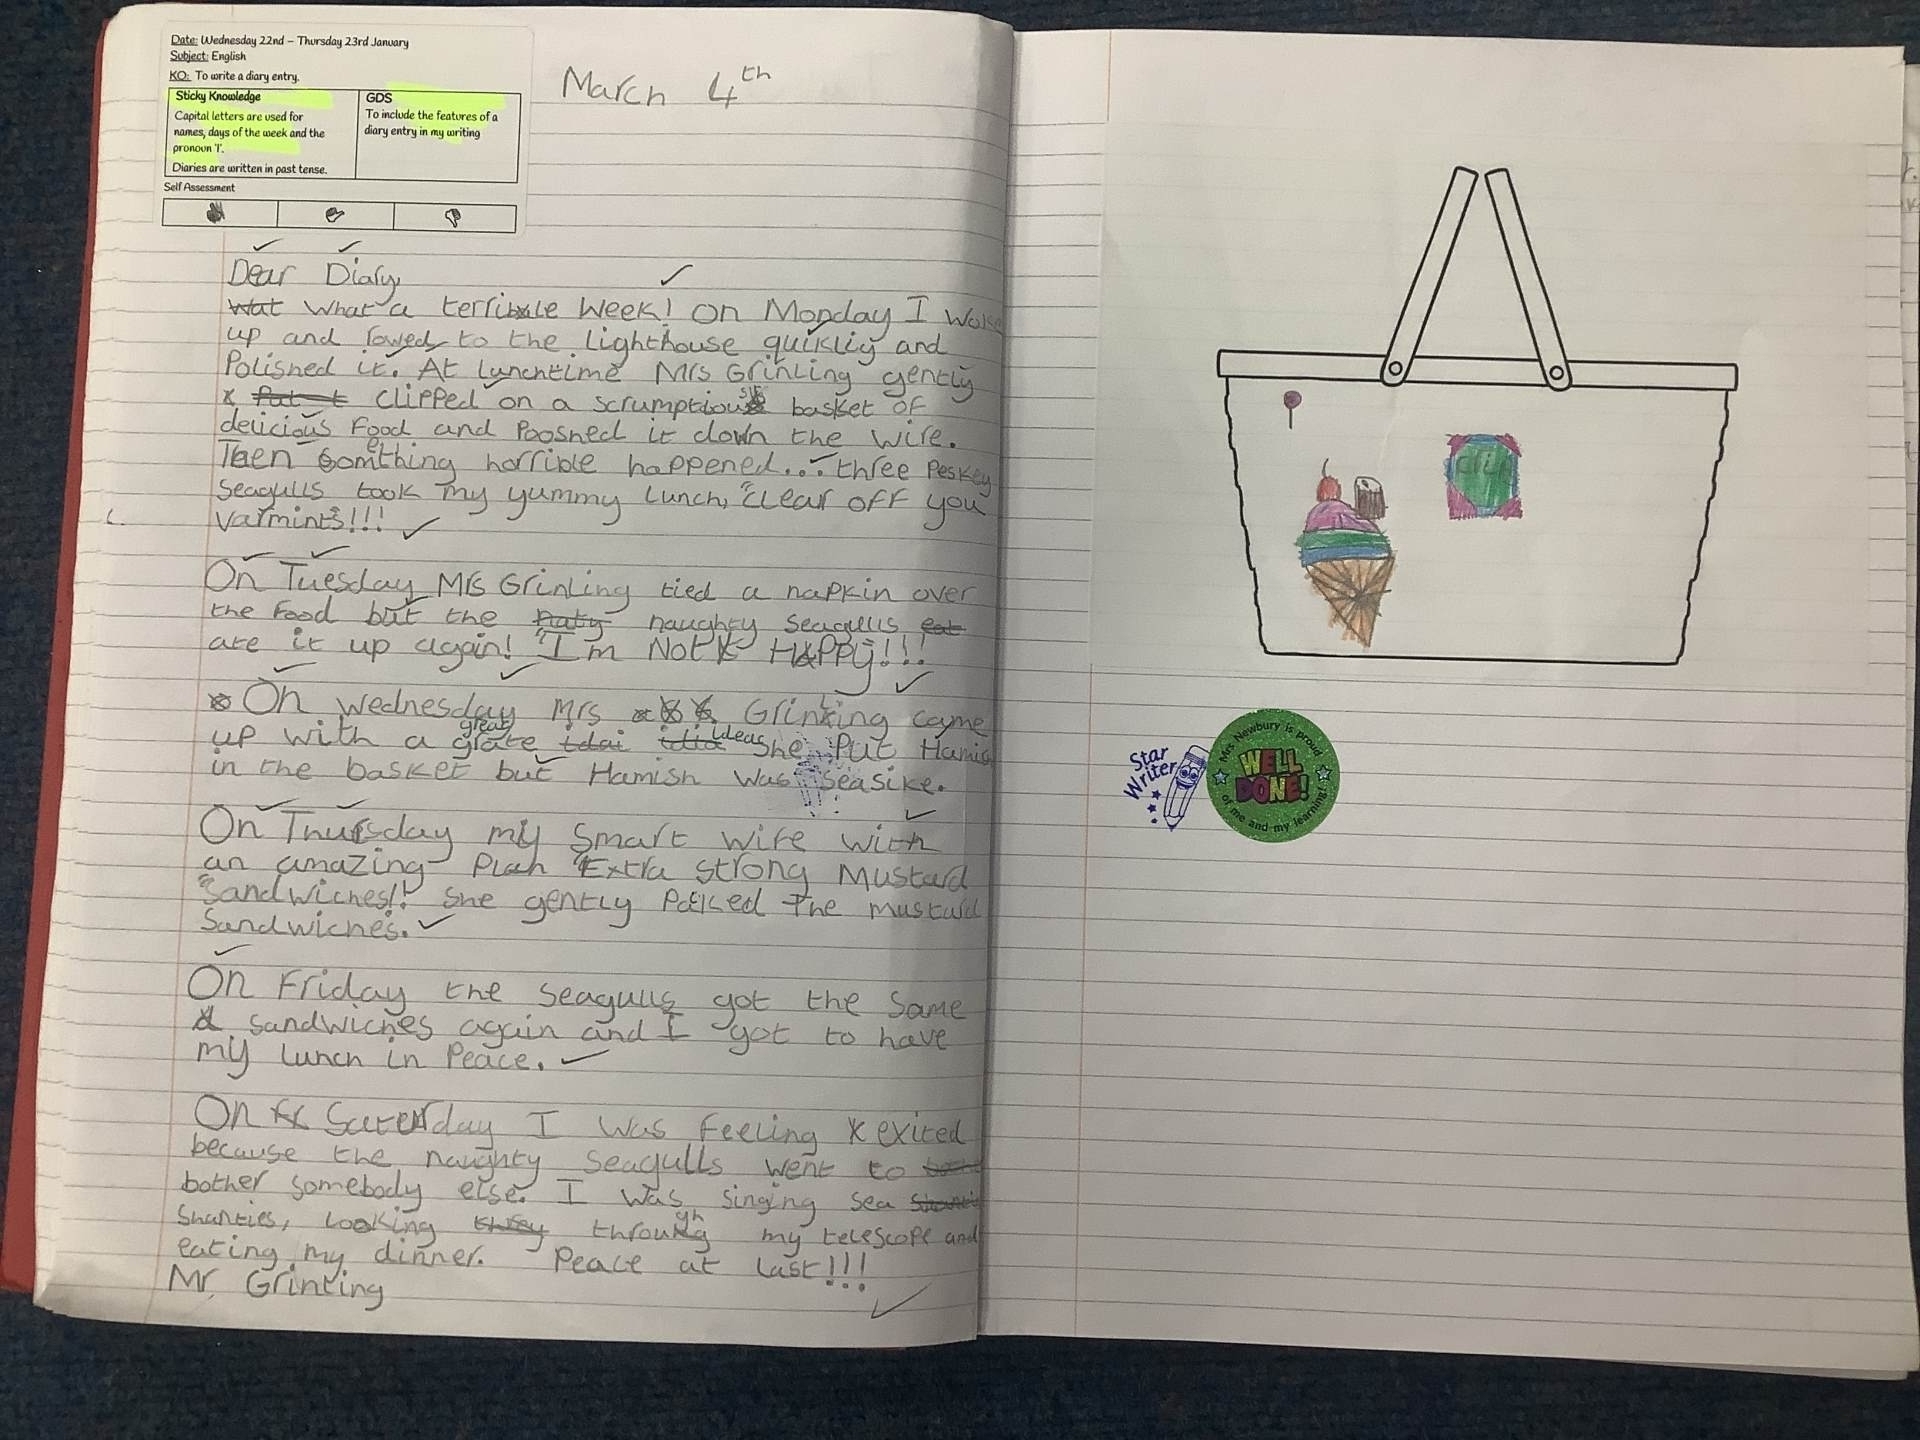 Date: Wednesday 22nd – Thursday 23rd January
Subject: English
KO: To write a diary entry.
Sticky Knowledge
Capital letters are used for
names, days of the week and the
pronoun 'I'.
Diaries are written in past tense.
GDS
To include the features of a
diary entry in my writing
Self Assessment
March 4th
Dear Diary,
Wat What a terrible week! On Monday I woke
up and rowed to the lighthouse quikliy and
Polished it. At lunchtime Mrs Grinling gently
clipped on a scrumptious basket of
delicious food and Pooshed it down the wire.
Then Somthing horrible happened... three Peskey
seagulls took my yummy lunch, "clear off you
varmints!!!
On Tuesday Mrs Grinling tied a napkin over
the food but the naty naughty seagulls eat
ate it up again! "I'm Not HAPPy!!!
On Wednesday Mrs Grinling came
up with a grate great idai idia ideas She Put Hamish
in the basket but Hamish was seasike.
On Thursday my smart wife with
an amazing Plan "Extra strong Mustard
Sandwiches!! She gently Packed The mustard
Sandwiches.
On Friday the seagulls got the same
sandwiches again and I got to have
my lunch in Peace.
On Saterday I was feeling exited
because the naughty seagulls went to
bother somebody else. I was singing sea
Shanties, Looking through my telescope and
eating my dinner. Peace at last!!!
Mr Grinling
Star
Writer
Mrs Newbury is proud
WELL
DONE!
of me and my learning!